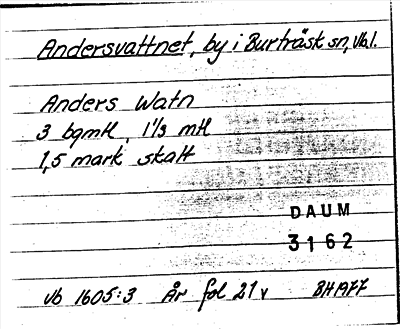 Andersvattnet, by i Burträsk sn, Vb.l.
Anders Watn
3 bgmtl, 1 1/3 mtl
1,5 mark skatt
DAUM
3162
Vb 1605:3 År fol 21v BH 1977